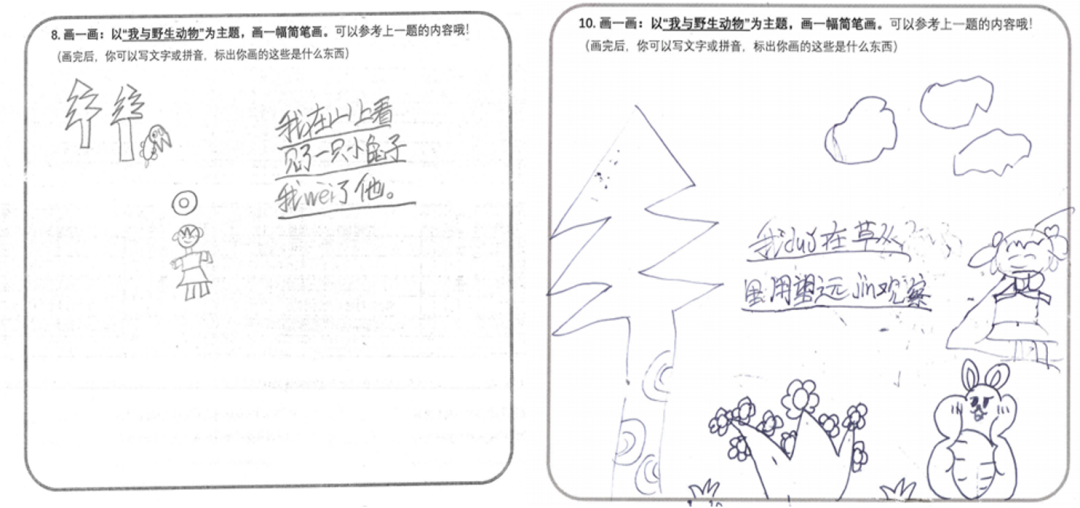 8. 画一画：以“我与野生动物”为主题，画一幅简笔画。可以参考上一题的内容哦！
（画完后，你可以写文字或拼音，标出你画的这些是什么东西）
我在山上看
见了一只小兔子
我wei了他。
10. 画一画：以“我与野生动物”为主题，画一幅简笔画。可以参考上一题的内容哦！
（画完后，你可以写文字或拼音，标出你画的这些是什么东西）
我duǒ在草丛
里用望远jìn观察